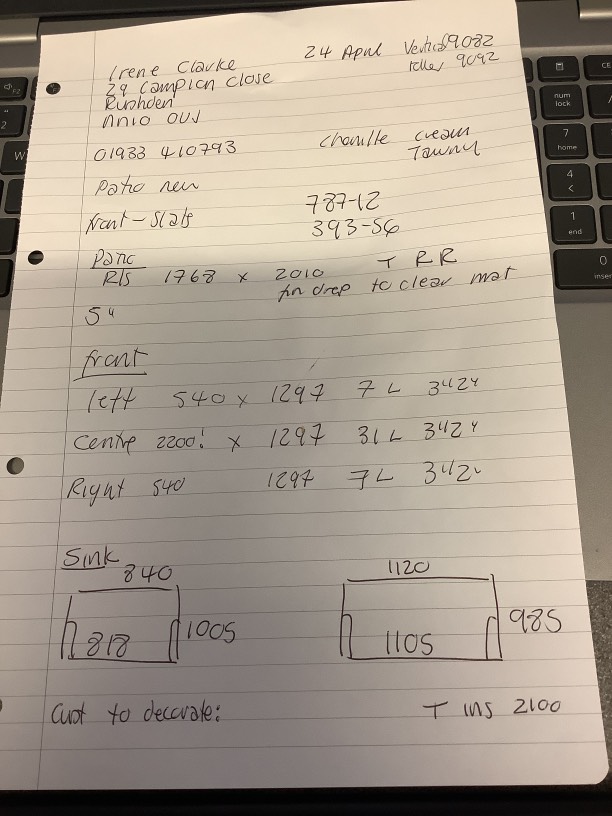 Irene Clarke 24 April Vertical 9082
29 Campion Close Roller 9092
Rushden
NN10 0UJ
01933 410793 Chenille Cream
Tawny
Patio new
front - Slats 787-12
393-56
Patio
R/S 1768 x 2010 T RR
fin drop to clear mat
5"
front
left 540 x 1297 7 L 3"2"
Centre 2200! x 1297 31 L 3"2"
Right 540 1297 7 L 3"2"
Sink
840 1120
818 1005 1105 985
Cust to decorate: T ins 2100
F2
2
W
num lock
CE
7 home
4
1 end
0